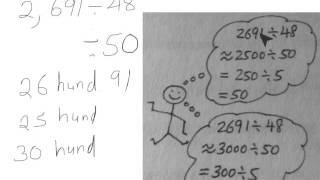 2,691÷48
≈50
26 hund 91
25 hund
30 hund
2691÷48
≈2500÷50
=250÷5
=50
2691÷48
≈3000÷50
=300÷5